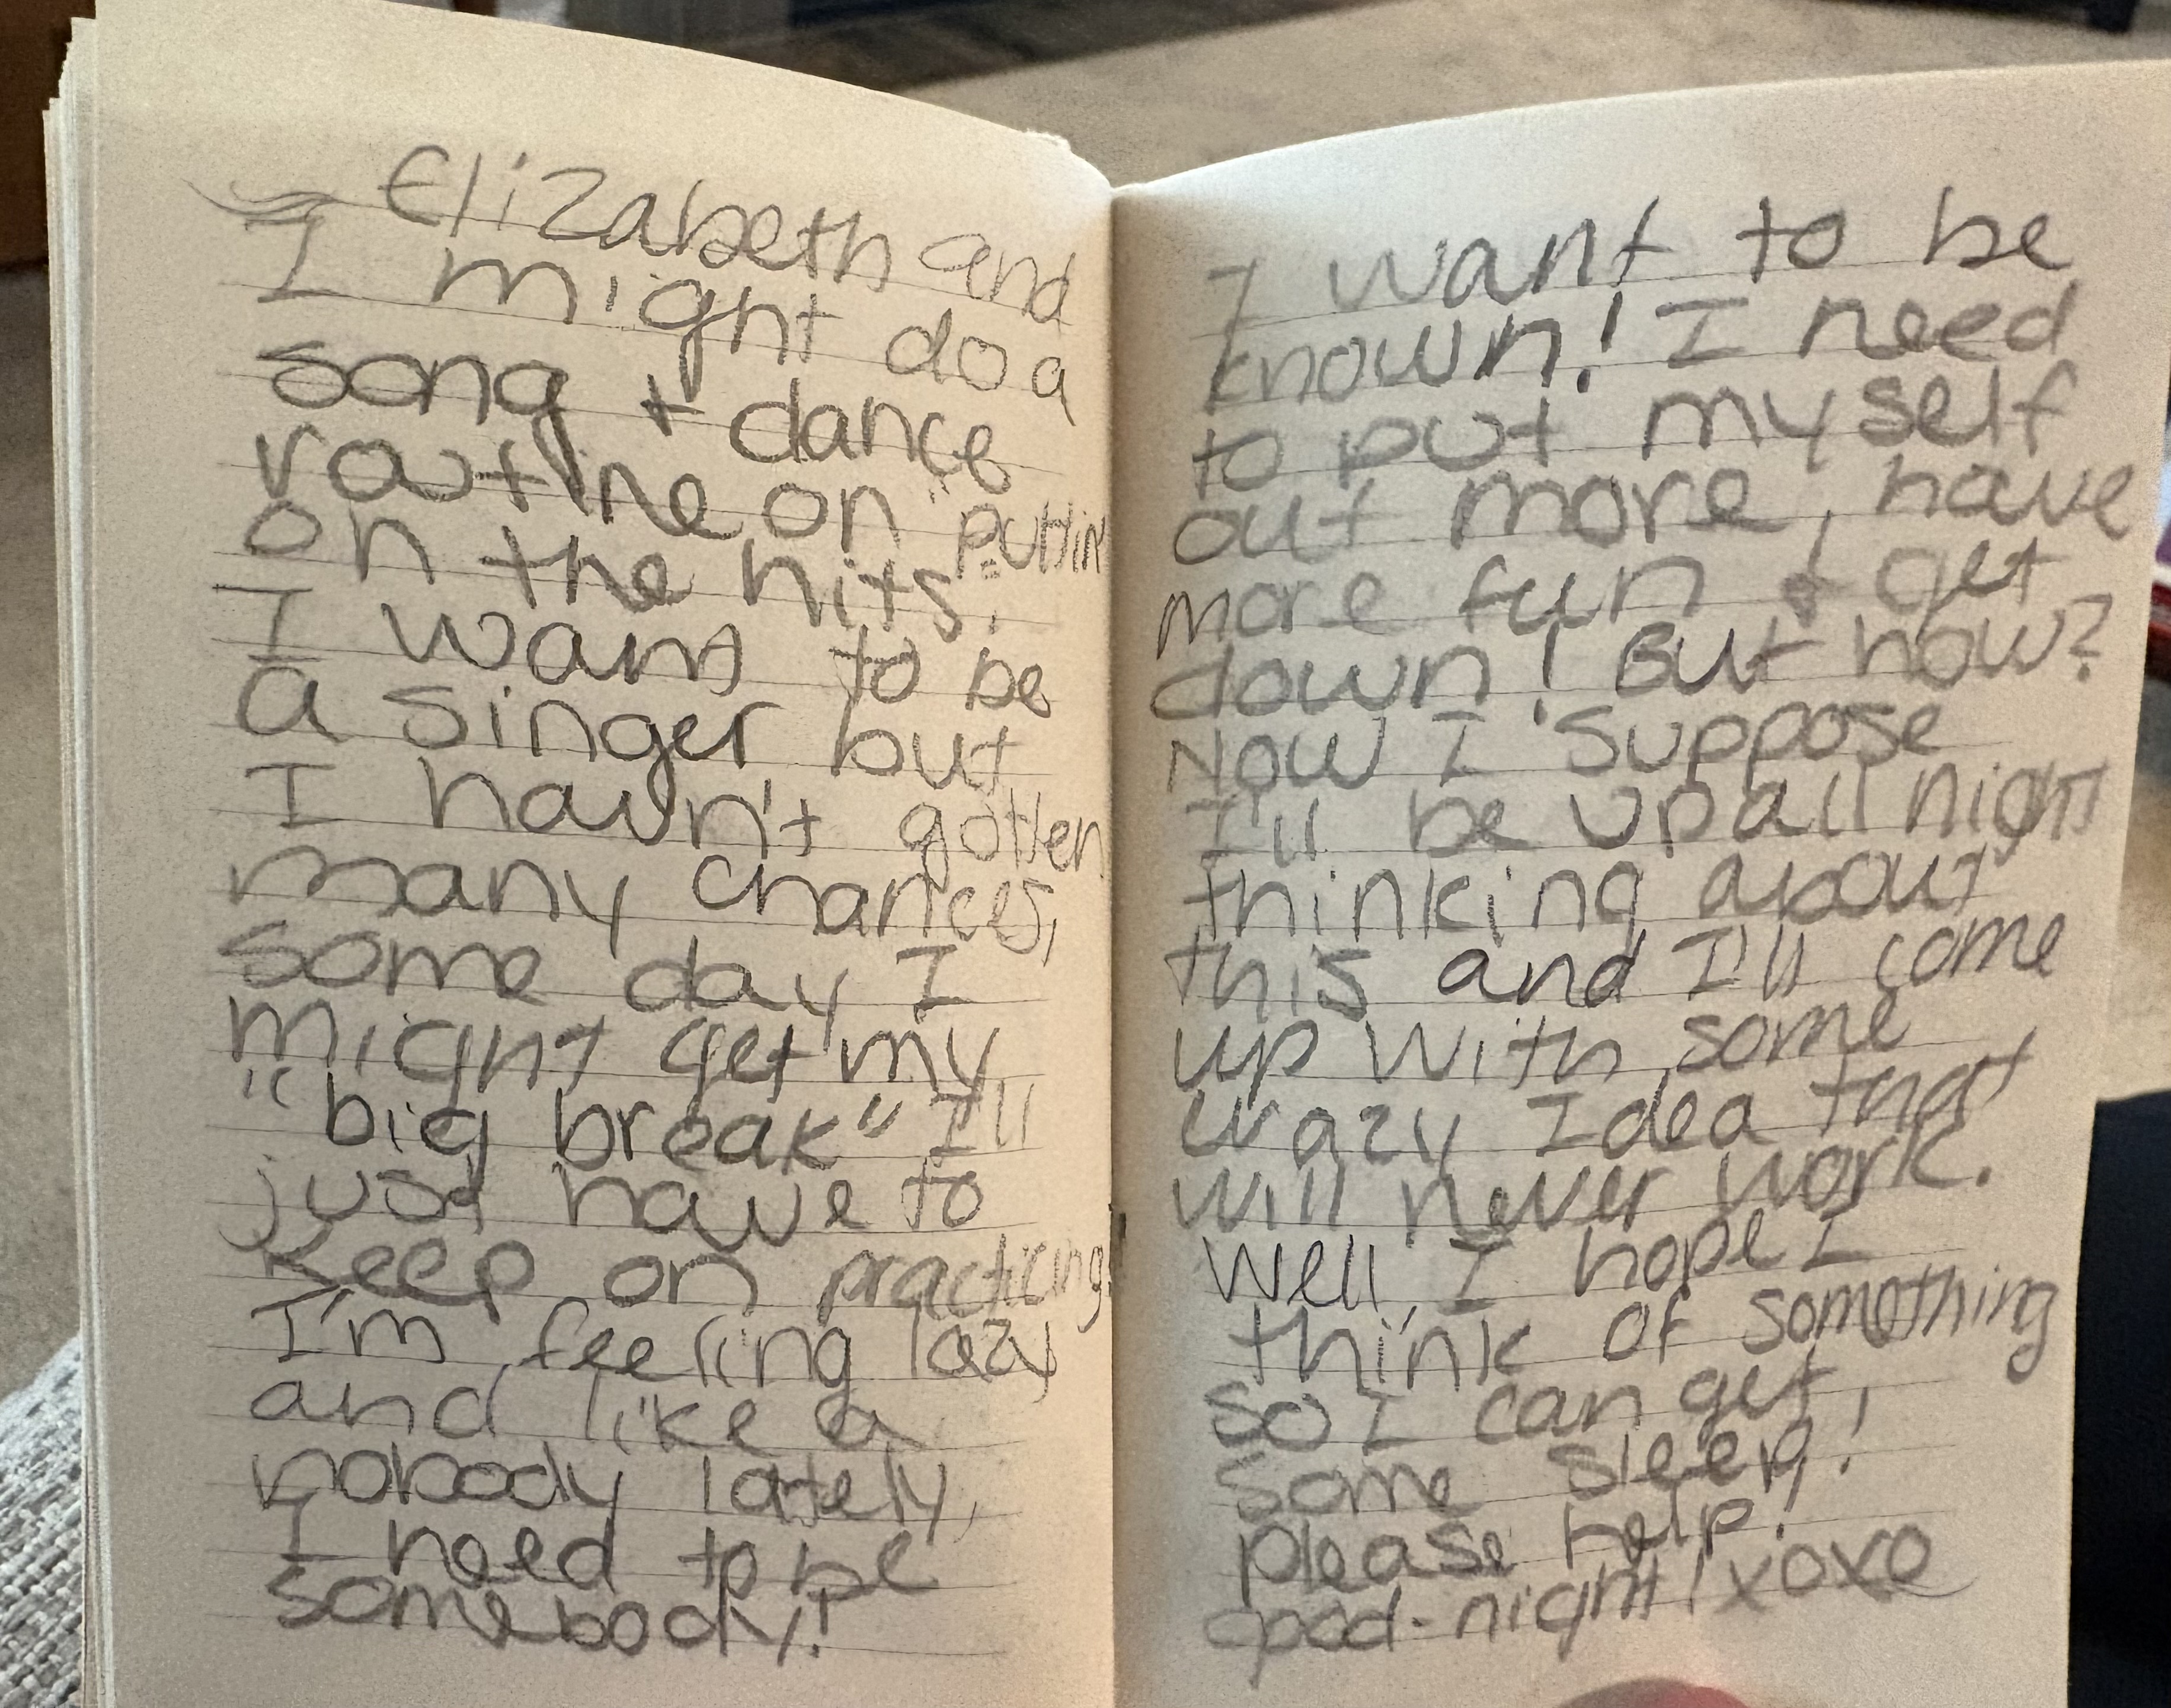 Elizabeth and
I might do a
song + dance
routine on "puttin'
on the hits".
I want to be
a singer but
I havn't gotten
many chances,
some day I
might get my
"big break" I'll
just have to
keep on practicing
I'm feeling lazy
and like a
nobody lately,
I need to be
somebody!
I want to be
known! I need
to put myself
out more, have
more fun & get
down! But how?
Now I suppose
I'll be up all night
thinking about
this and I'll come
up with some
crazy Idea that
will never work.
Well, I hope I
think of something
so I can get
some sleep!
please help!
good-night! xoxo